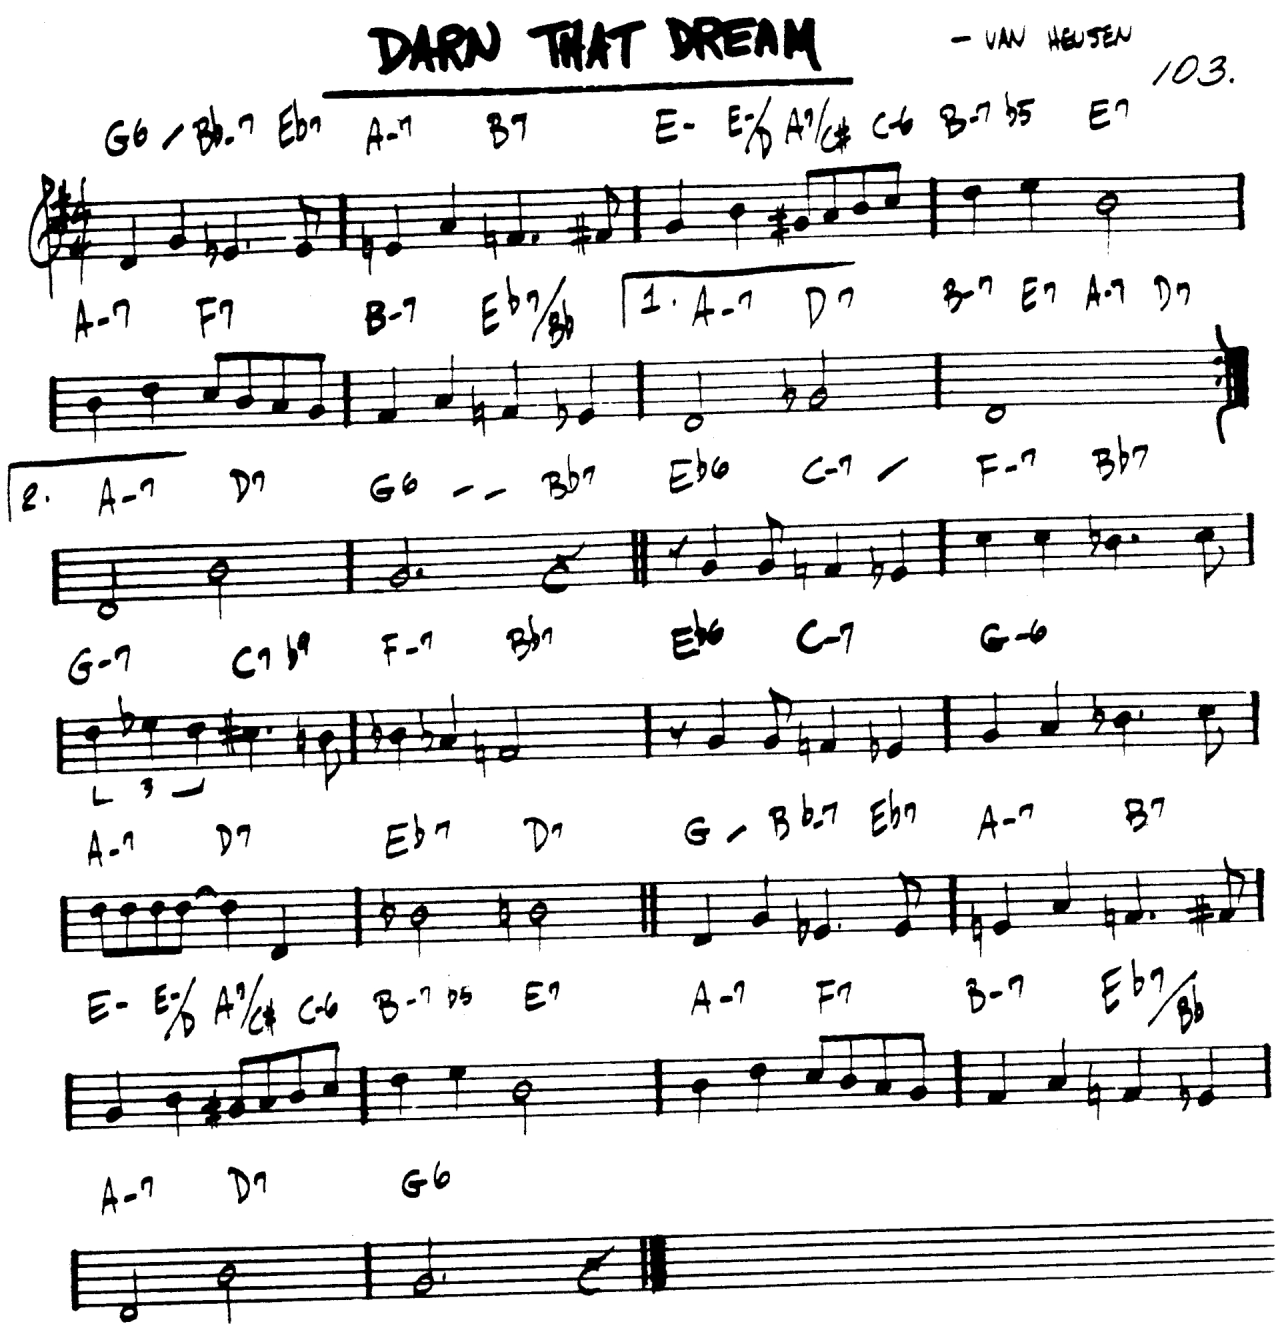 DARN THAT DREAM
- VAN HEUSEN
103.
G6 - Bb-7 Eb7 A-7 B7 E- E-/D A7/C# C-6 B-7 b5 E7
A-7 F7 B-7 Eb7/Bb 1. A-7 D7 B-7 E7 A-7 D7
2. A-7 D7 G6 - - Bb7 Eb6 C-7 - F-7 Bb7
G-7 C7 b9 F-7 Bb7 Eb6 C-7 G-6
3
A-7 D7 Eb7 D7 G - Bb-7 Eb7 A-7 B7
E- E-/D A7/C# C-6 B-7 b5 E7 A-7 F7 B-7 Eb7/Bb
A-7 D7 G6